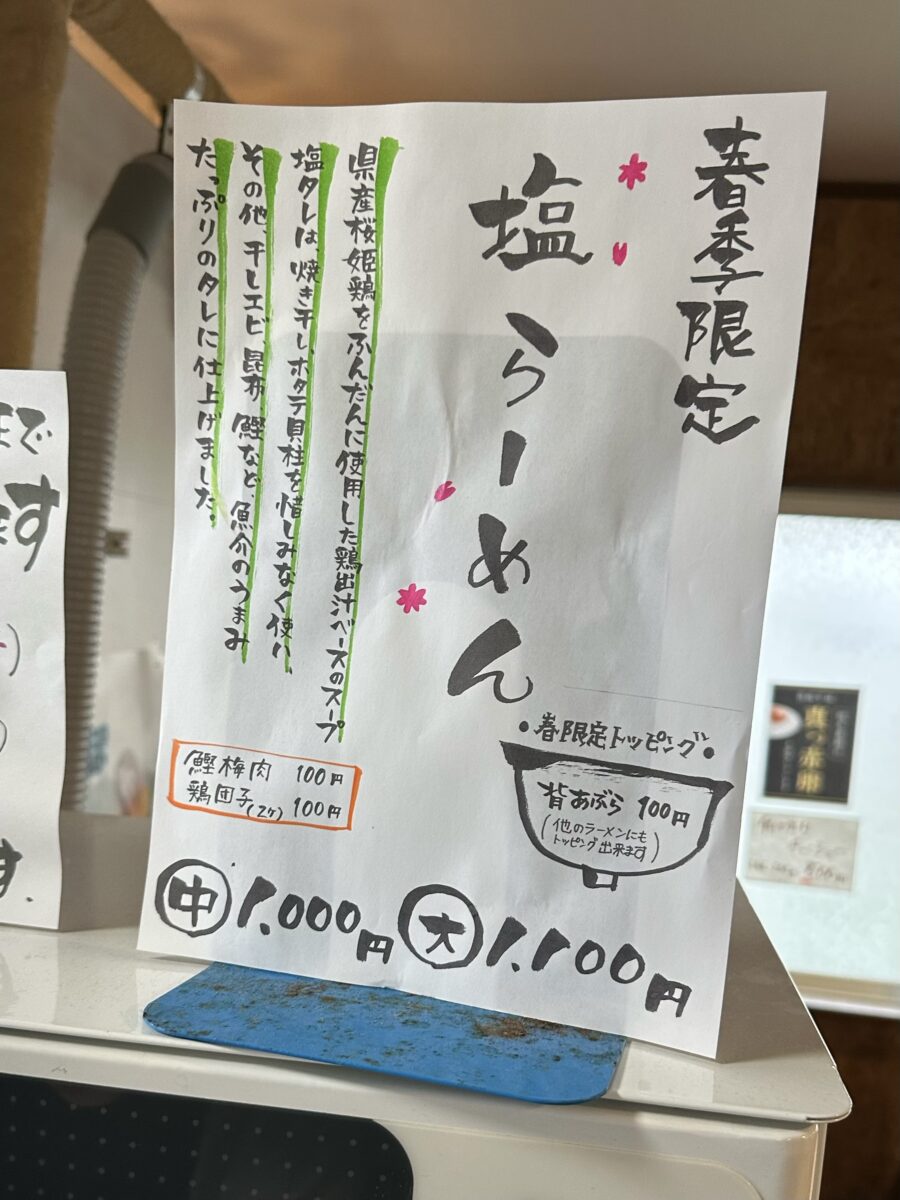 春季限定
塩らーめん
県産桜姫鶏をふんだんに使用した鶏出汁ベースのスープ
塩タレは、焼き干し、ホタテ貝柱を惜しみなく使い、
その他、干しエビ、昆布、鰹など、魚介のうまみ
たっぷりのタレに仕上げました。
・春限定トッピング・
背あぶら 100円
(他のラーメンにも
トッピング出来ます)
鰹梅肉 100円
鶏団子(2ケ) 100円
中 1.000円 大 1.100円
まで
ます
す.